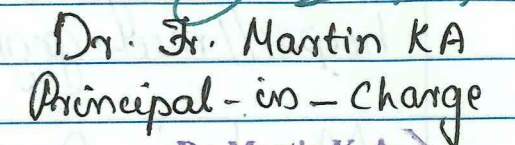 Dr. Fr. Martin KA
Principal - in - Charge